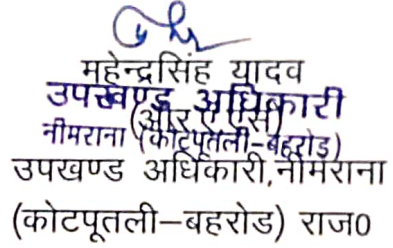 महेन्द्रसिंह यादव
उपखण्ड अधिकारी
(आर ए एस)
नीमराना (कोटपूतली-बहरोड़)
उपखण्ड अधिकारी,नीमराना
(कोटपूतली–बहरोड) राज0